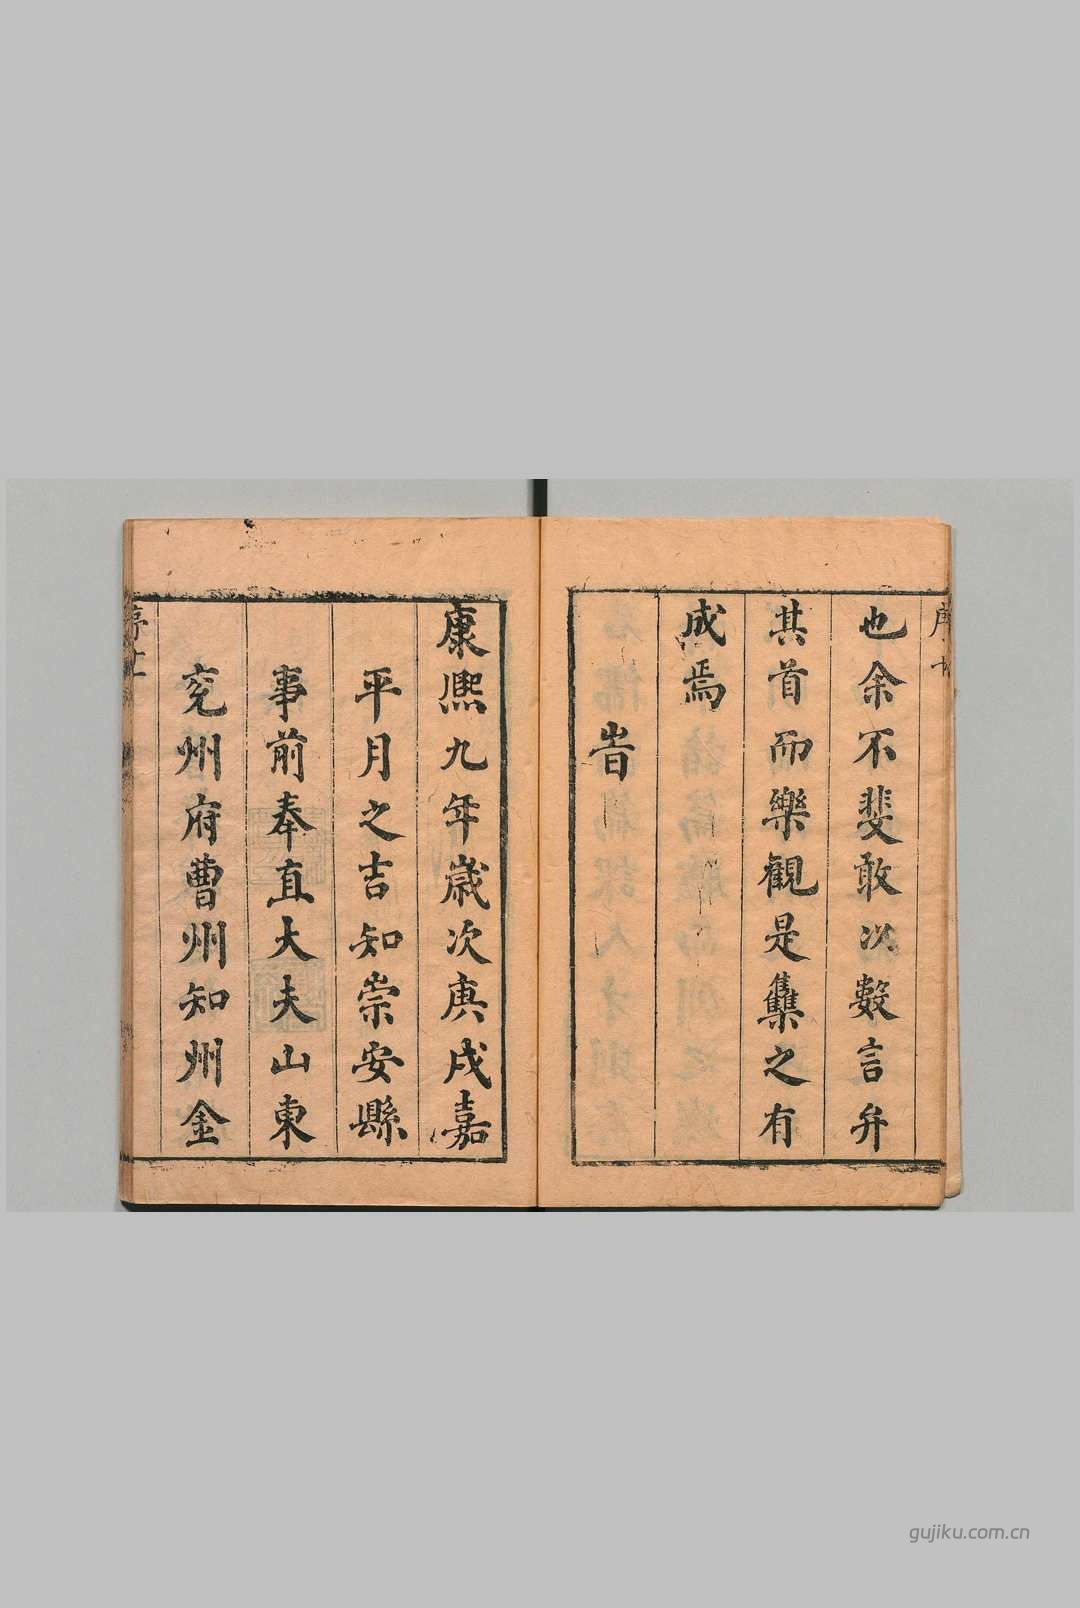 也余不斐敢以數言弁
其首而樂觀是集之有
成焉
旹
康熙九年歲次庚戌嘉
平月之吉知崇安縣
事前奉直大夫山東
兗州府曹州知州金
gujiku.com.cn